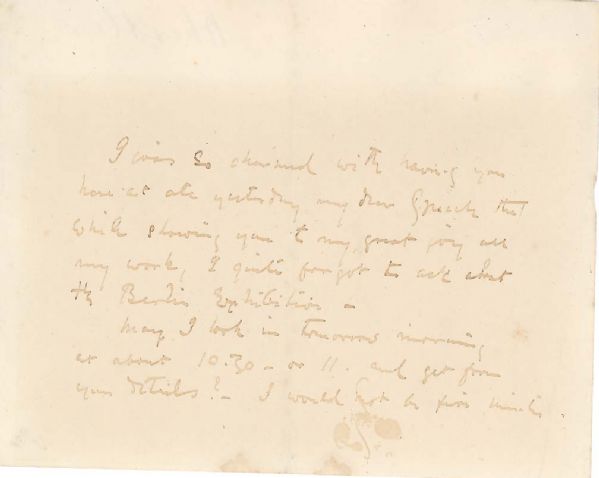 I was so charmed with having you
here at yesterday my dear that
while showing you to my great joy all
my work, I quite forgot to ask abt
the Berlin Exhibition –
May I look in tomorrow morning
at about 10.30 – or 11. and get from
you details? – I would not be five minutes.